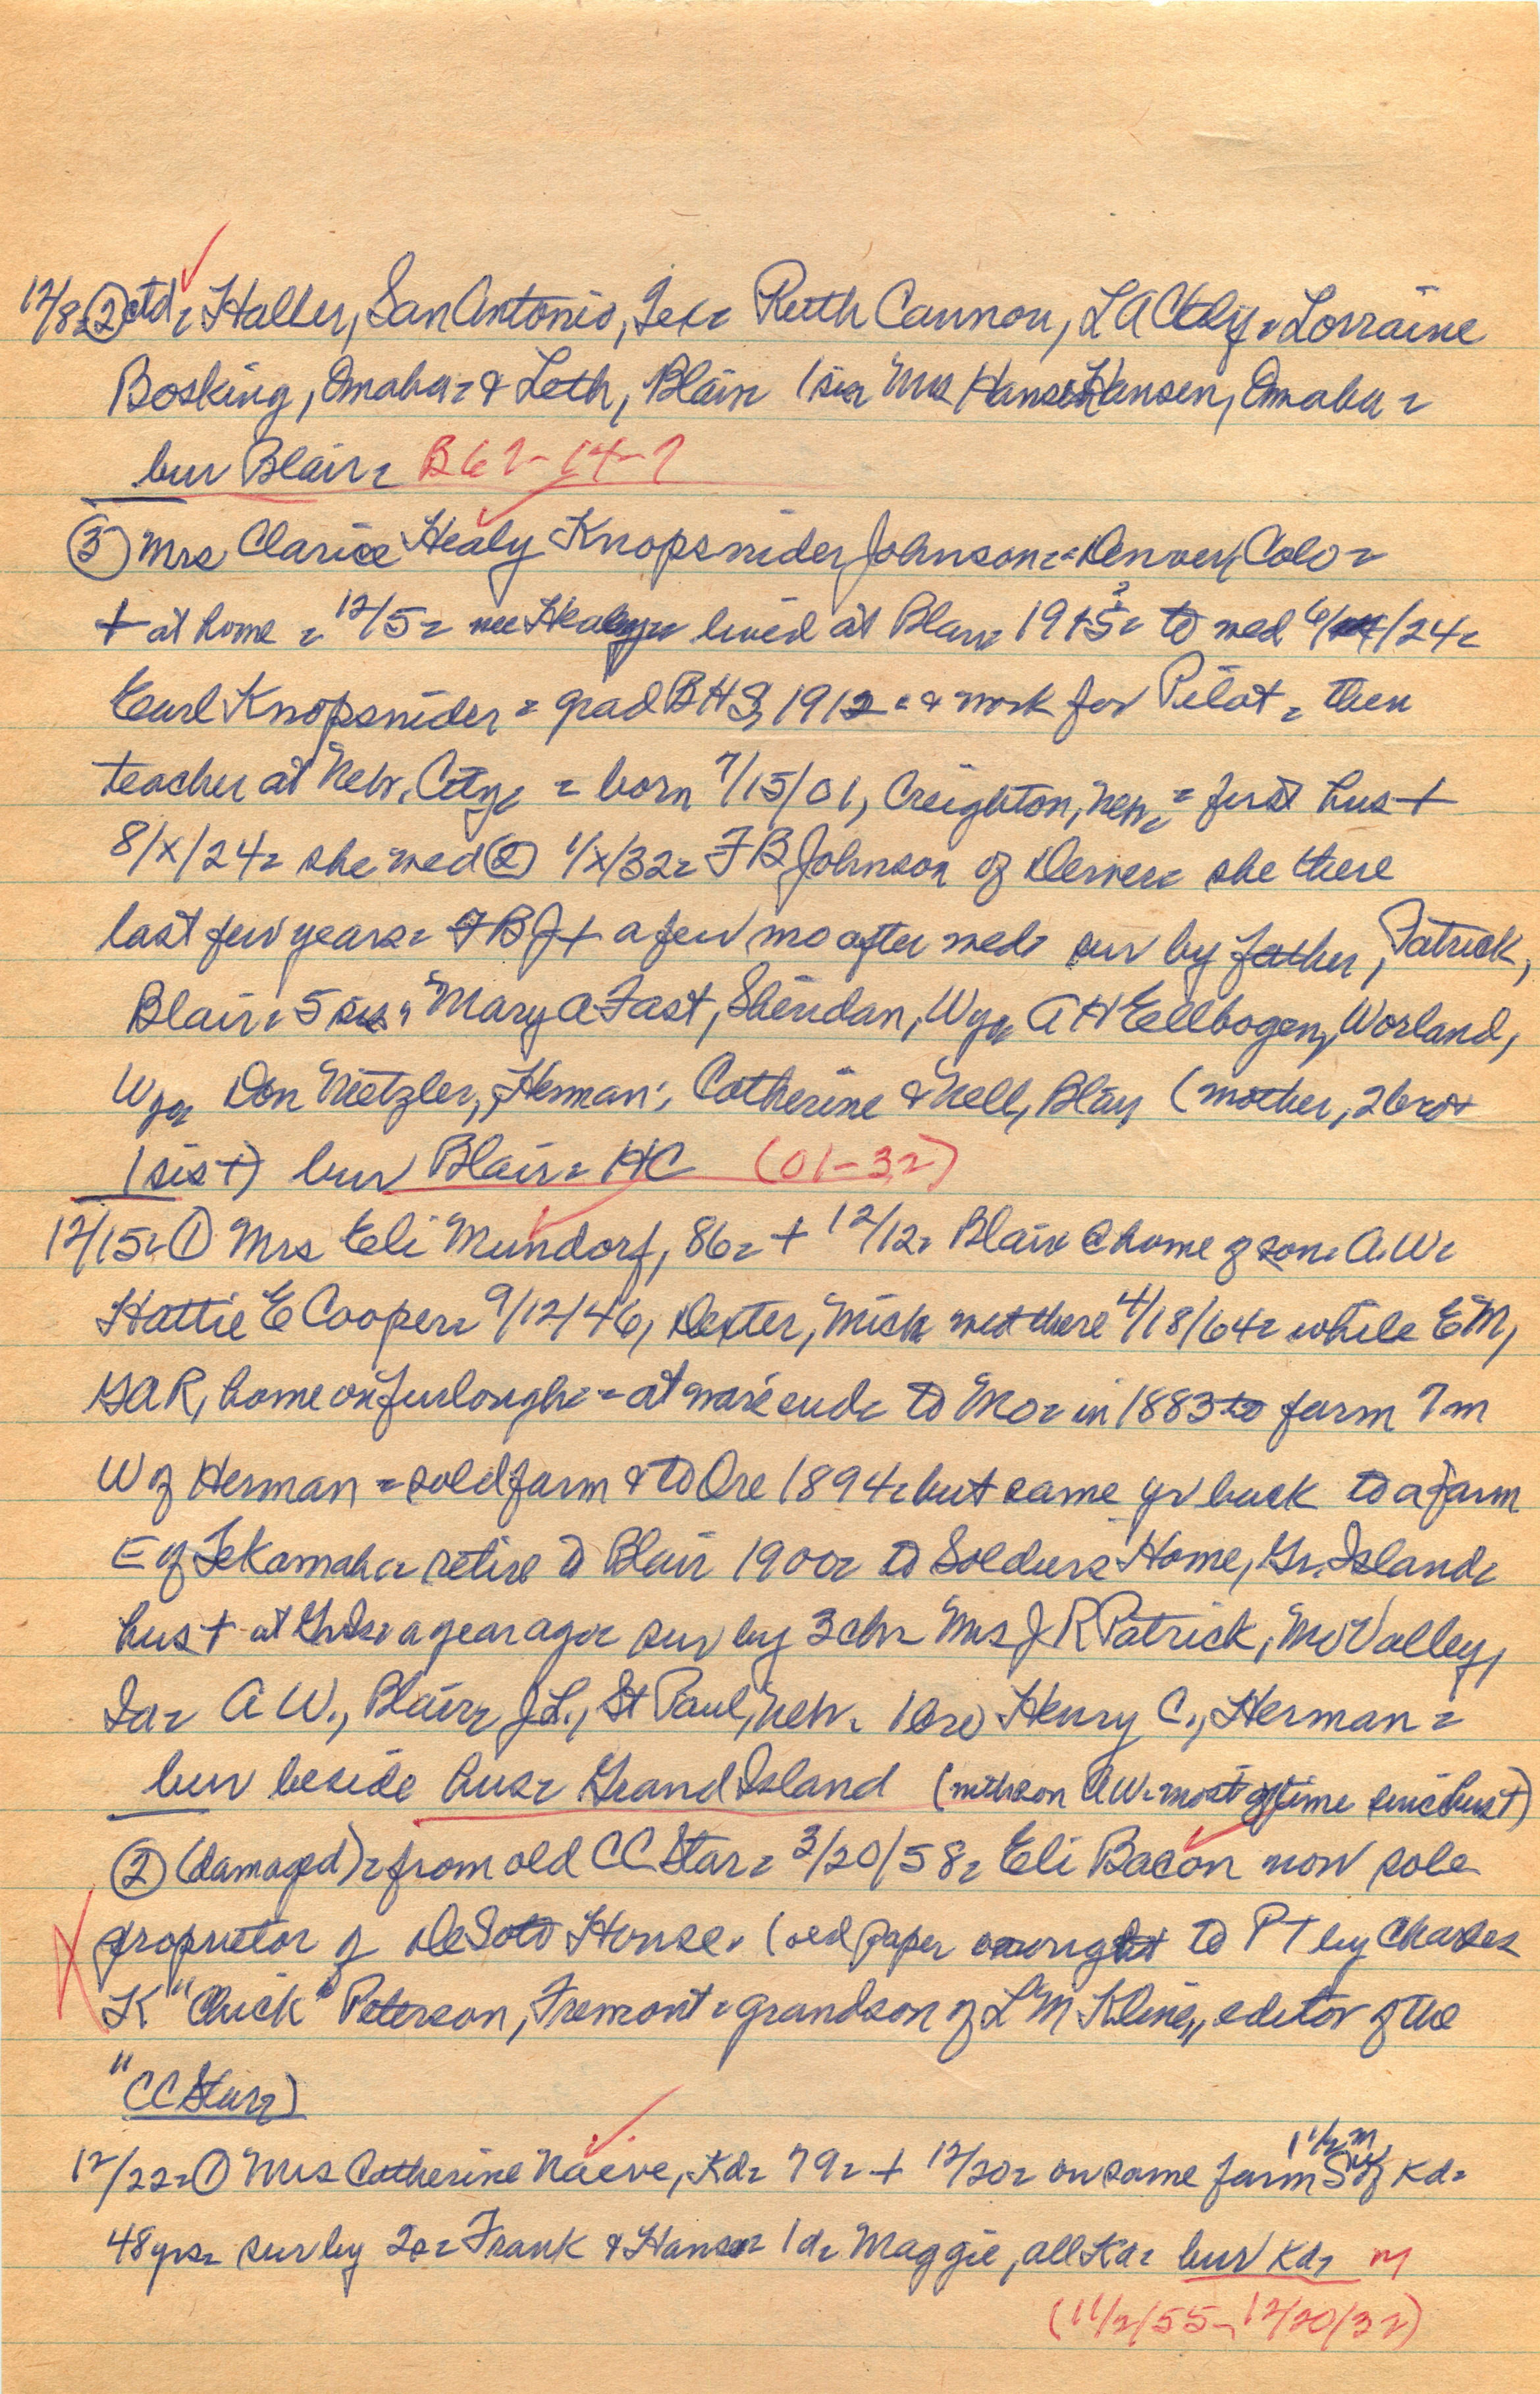 12/8= ② ctd= Haller, San Antonio, Tex= Ruth Cannon, LA City= Lorraine
Bosking, Omaha= & Leth, Blair= 1 sis Mrs Hans Hansen, Omaha=
bur Blair=
③ Mrs Clarice Healy Knopsnider Johnson= = Denver, Colo=
+ at home = 12/5= nee Healy= lived at Blair= to wed 6/ /24=
Earl Knopsnider = grad BHS, 1912 = & work for Pilot = then
teacher at Neb. City= = born 7/15/01, Creighton, Neb= = first hus +
8/x/24= she wed ② 1/x/32= FB Johnson of Denver= she there
last few years= FBJ + a few mo after wed= sur by father, Patrick,
Blair= 5 sis= Mary A Fast, Sheridan, Wy= A H Ellbogen, Worland,
Wy= Don Metzler, Herman; Catherine & Nell, Blair (mother, 2 bro+
1 sis +) bur Blair= HC (01-32)
12/15= ① Mrs Eli Mundorf, 86= + 12/12= Blair @ home of son= A.W=
Hattie E Cooper= 9/12/46, Dexter, Mich wed there 4/18/64= while EM,
GAR, home on furlough= = at war's end= to Mo= in 1883 to farm 7 m
W of Herman = sold farm & to Ore 1894= but same yr back to a farm
E of Tekamah= retire to Blair 1900= to Soldiers Home, Gr. Island=
hus + at Gr Is= a year ago= sur by 3 ch= Mrs J R Patrick, Mo Valley,
Ia= A W., Blair= J.L., St Paul, Neb. 1 bro Henry C., Herman=
bur beside hus= Grand Island (with son AW= most of time since hus +)
② (damaged)= from old CC Star= 3/20/58= Eli Bacon now sole
proprietor of DeSoto House. (old paper brought to PT by Charles
K "Chick" Peterson, Fremont= grandson of L M Kline, editor of the
"CC Star=)
12/22= ① Mrs Catherine Naeve, Kd= 79= + 12/20= on same farm 1 1/2 m S of Kd=
48 yrs= sur by 2s= Frank & Hans= 1 d= Maggie, all Kd= bur Kd= m
(11/2/55-12/20/32)